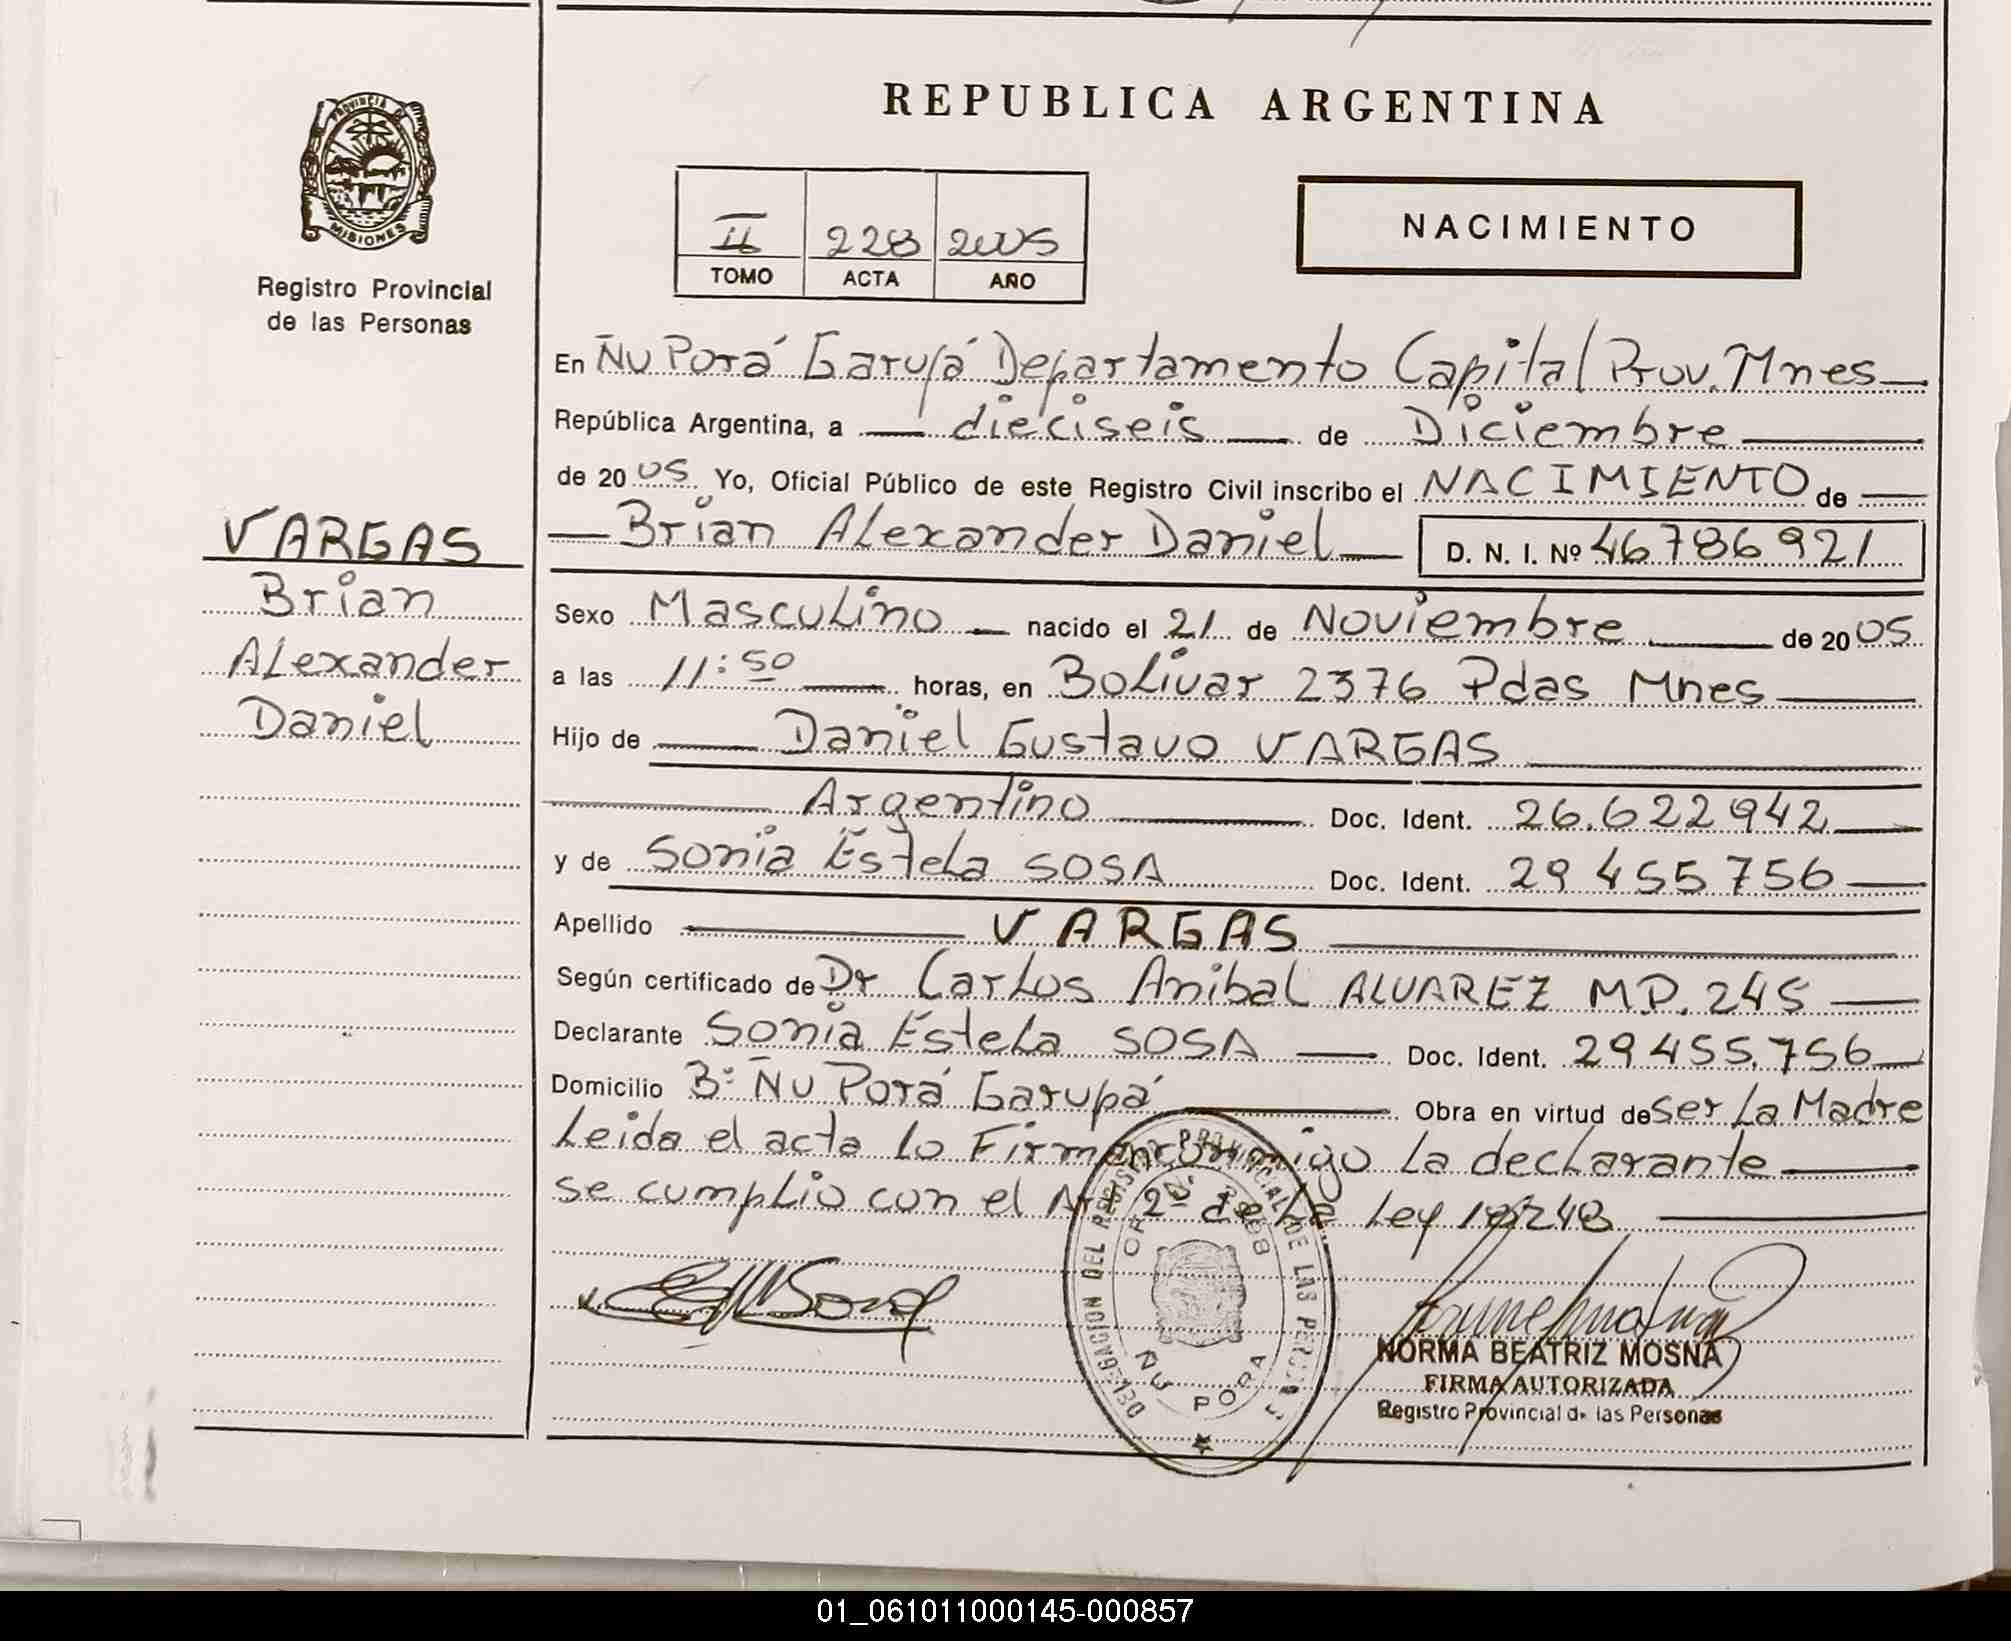 REPUBLICA ARGENTINA
PROVINCIA DE
MISIONES
Registro Provincial
de las Personas
II 228 2005
TOMO ACTA AÑO
NACIMIENTO
En Ñu Porá Garupá Departamento Capital Prov. Mnes
República Argentina, a dieciseis de Diciembre
de 2005 Yo, Oficial Público de este Registro Civil inscribo el NACIMIENTO de
Brian Alexander Daniel D. N. I. Nº 46786921
VARGAS
Brian
Alexander
Daniel
Sexo Masculino nacido el 21 de Noviembre de 2005
a las 11:50 horas, en Bolivar 2376 Pdas Mnes
Hijo de Daniel Gustavo VARGAS
Argentino Doc. Ident. 26.622942
y de Sonia Estela SOSA Doc. Ident. 29 455 756
Apellido VARGAS
Según certificado de Dr Carlos Anibal ALVAREZ M.P. 245
Declarante Sonia Estela SOSA Doc. Ident. 29.455.756
Domicilio Bº Ñu Porá Garupá Obra en virtud de Ser La Madre
Leida el acta lo Firman conmigo la declarante
se cumplio con el Art 2º de la Ley 18248
DELEGACION DEL REGISTRO PROVINCIAL DE LAS PERSONAS
ÑU PORA
NORMA BEATRIZ MOSNA
FIRMA AUTORIZADA
Registro Provincial de las Personas
01_061011000145-000857